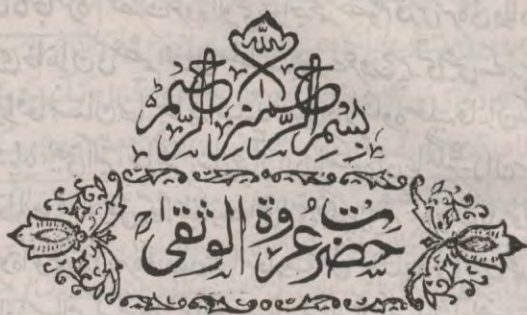 بسم الله الرحمن الرحيم
حضرت عروة الوثقىٰ